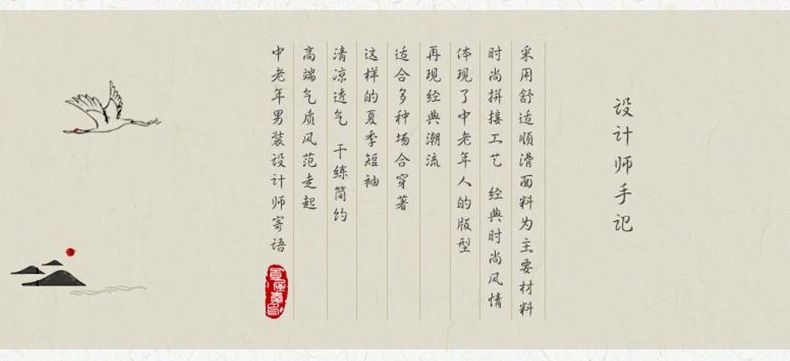 设计师手记
采用舒适顺滑面料为主要材料
时尚拼接工艺 经典时尚风情
体现了中老年人的版型
再现经典潮流
适合多种场合穿著
这样的夏季短袖
清凉透气 干练简约
高端气质风范走起
中老年男装设计师寄语